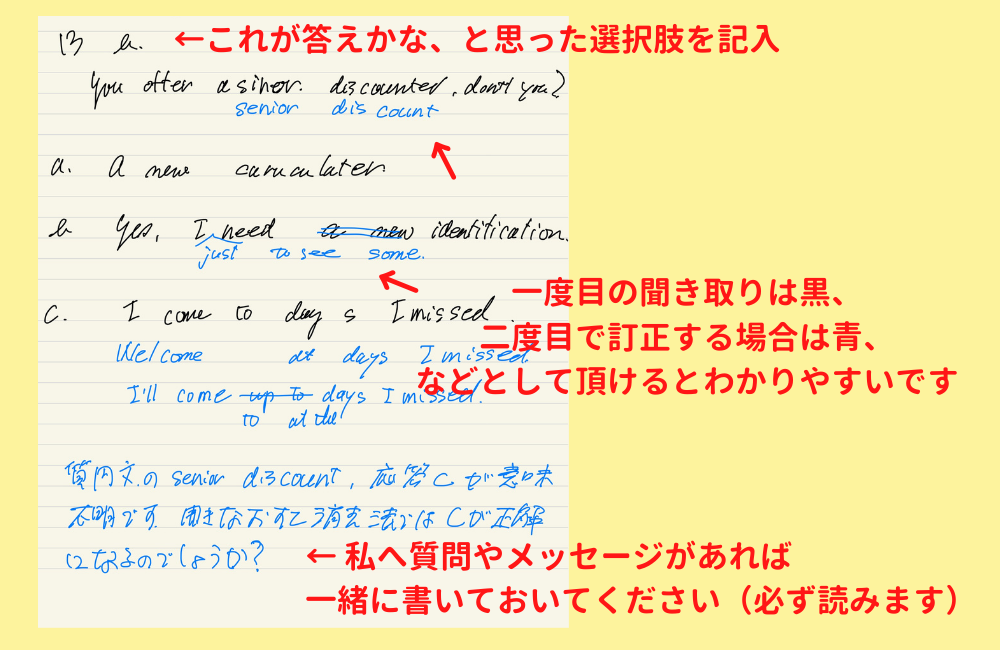 13 b. ←これが答えかな、と思った選択肢を記入
You offer a sinor. discounter, don't you?
senior discount
a. A new
b Yes, I need a new identification.
just to see some.
一度目の聞き取りは黒、
c. I come to day s I missed.
二度目で訂正する場合は青、
Welcome at days I missed.
などとして頂けるとわかりやすいです
I'll come up to days I missed.
to at the
質問文の senior discount, 応答Cが意味
不明です 聞きなおすと 消去法ではCが正解
になるのでしょうか?
← 私へ質問やメッセージがあれば
一緒に書いておいてください（必ず読みます）